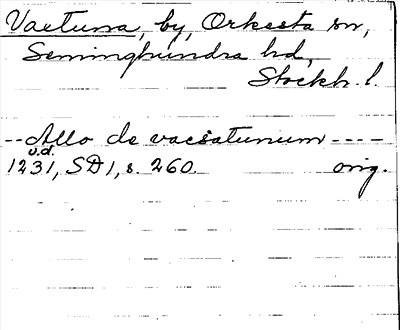 Vaetuna, by, Orkesta sn,
Seminghundra hd,
Stockh. l.
-- Allo de vaesatunum ----
u.d.
1231, SD1, s. 260. orig.